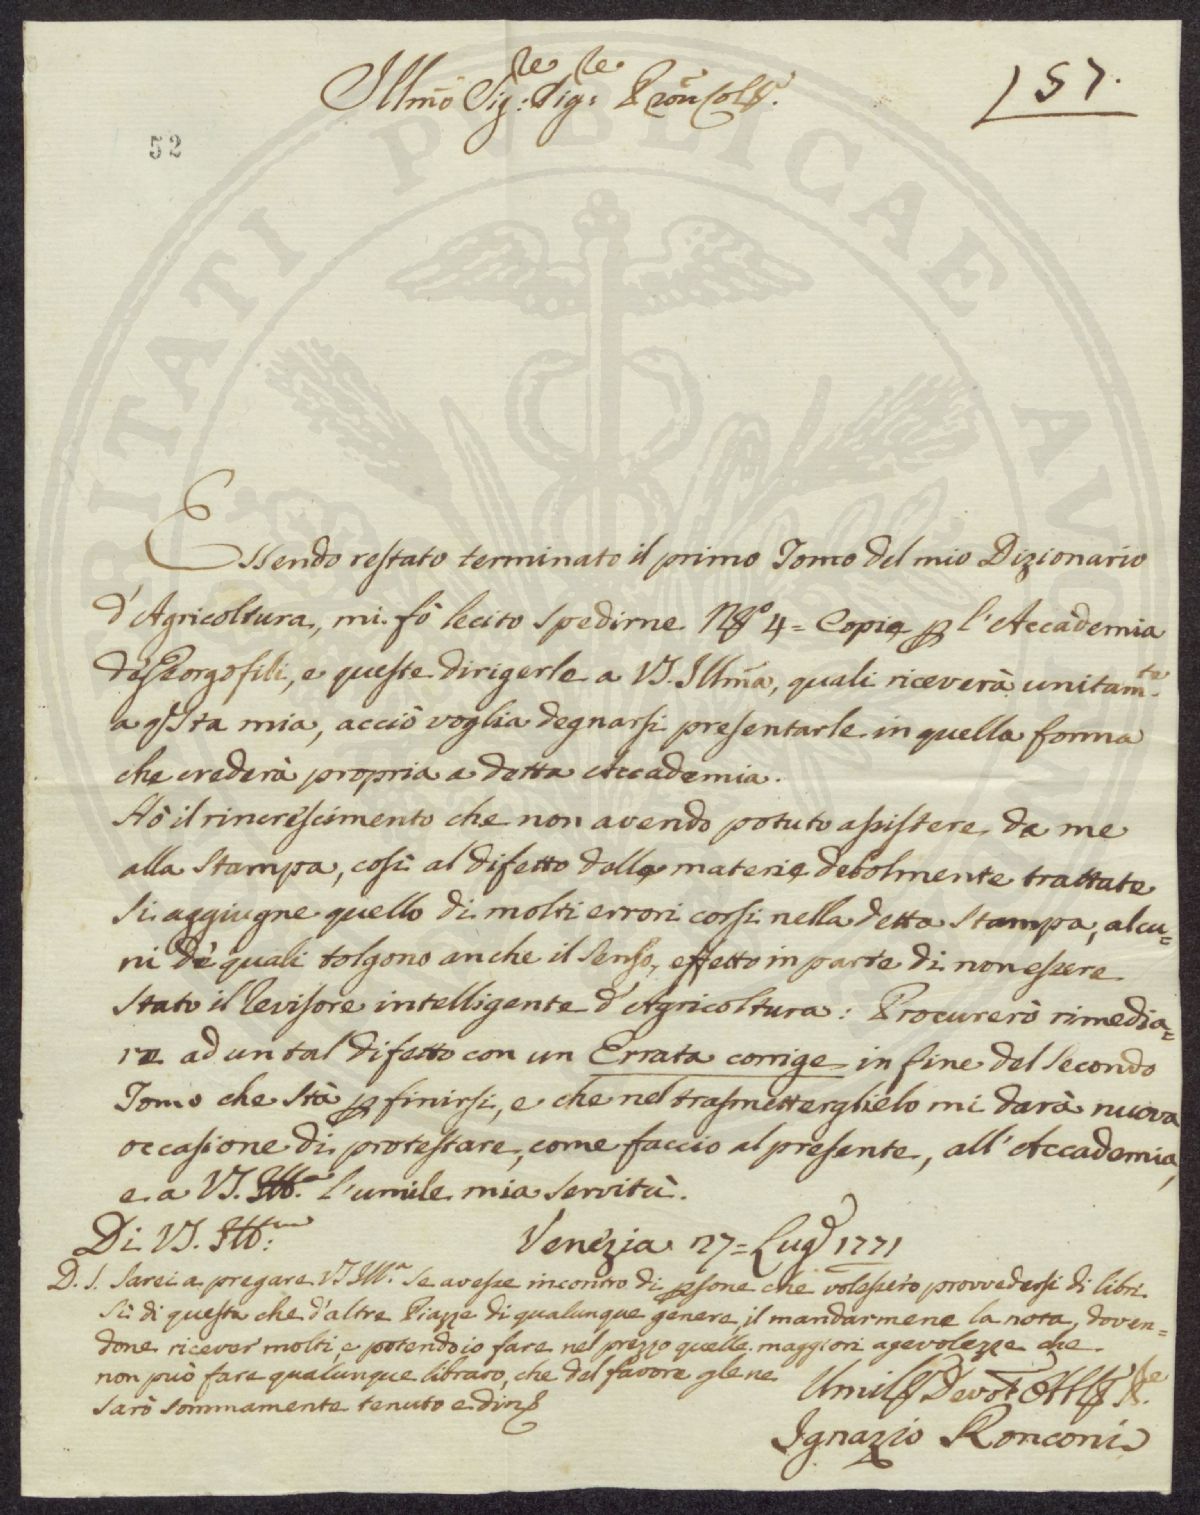 Illmo Sig:re Sig:re Pron Colmo
157.
52
PUBLICAE
Essendo restato terminato il primo Tomo del mio Dizionario
d'Agricoltura, mi fò lecito spedirne No 4= Copie p l'Accademia
de Georgofili, e queste dirigerle a VS. Illma, quali riceverà unitamte
a qsta mia, acciò voglia degnarsi presentarle in quella forma
che crederà propria a detta Accademia.
Hò il rincrescimento che non avendo potuto assistere da me
alla Stampa, così al difetto delle materie debolmente trattate
si aggiugne quello di molti errori corsi nella detta Stampa, alcu=
ni de quali tolgono anche il Senso, effetto in parte di non essere
Stato il Revisore intelligente d'Agricoltura: Procurerò rimedia=
re ad un tal difetto con un Errata corrige in fine del Secondo
Tomo che Stà p finirsi, e che nel trasmetterglielo mi darà nuova
occasione di protestare, come faccio al presente, all'Accademia,
e a VS. Illa l'umile mia Servitù.
Di VS. Illa:
Venezia 27= Lugo 1771
P. S. Sarei a pregare VS Illa Se avesse incontro di psone che volessero provvedersi di libri
Sì di questa che d'altre Piazze di qualunque genere, il mandarmene la nota, doven=
done ricever molti, e potendo io fare nel prezzo quelle maggiori agevolezze che
non può fare qualunque libraro, che del favore gle ne
Sarò Sommamente tenuto e
Umilmo Devotmo Obblmo Sre
Ignazio Ronconi